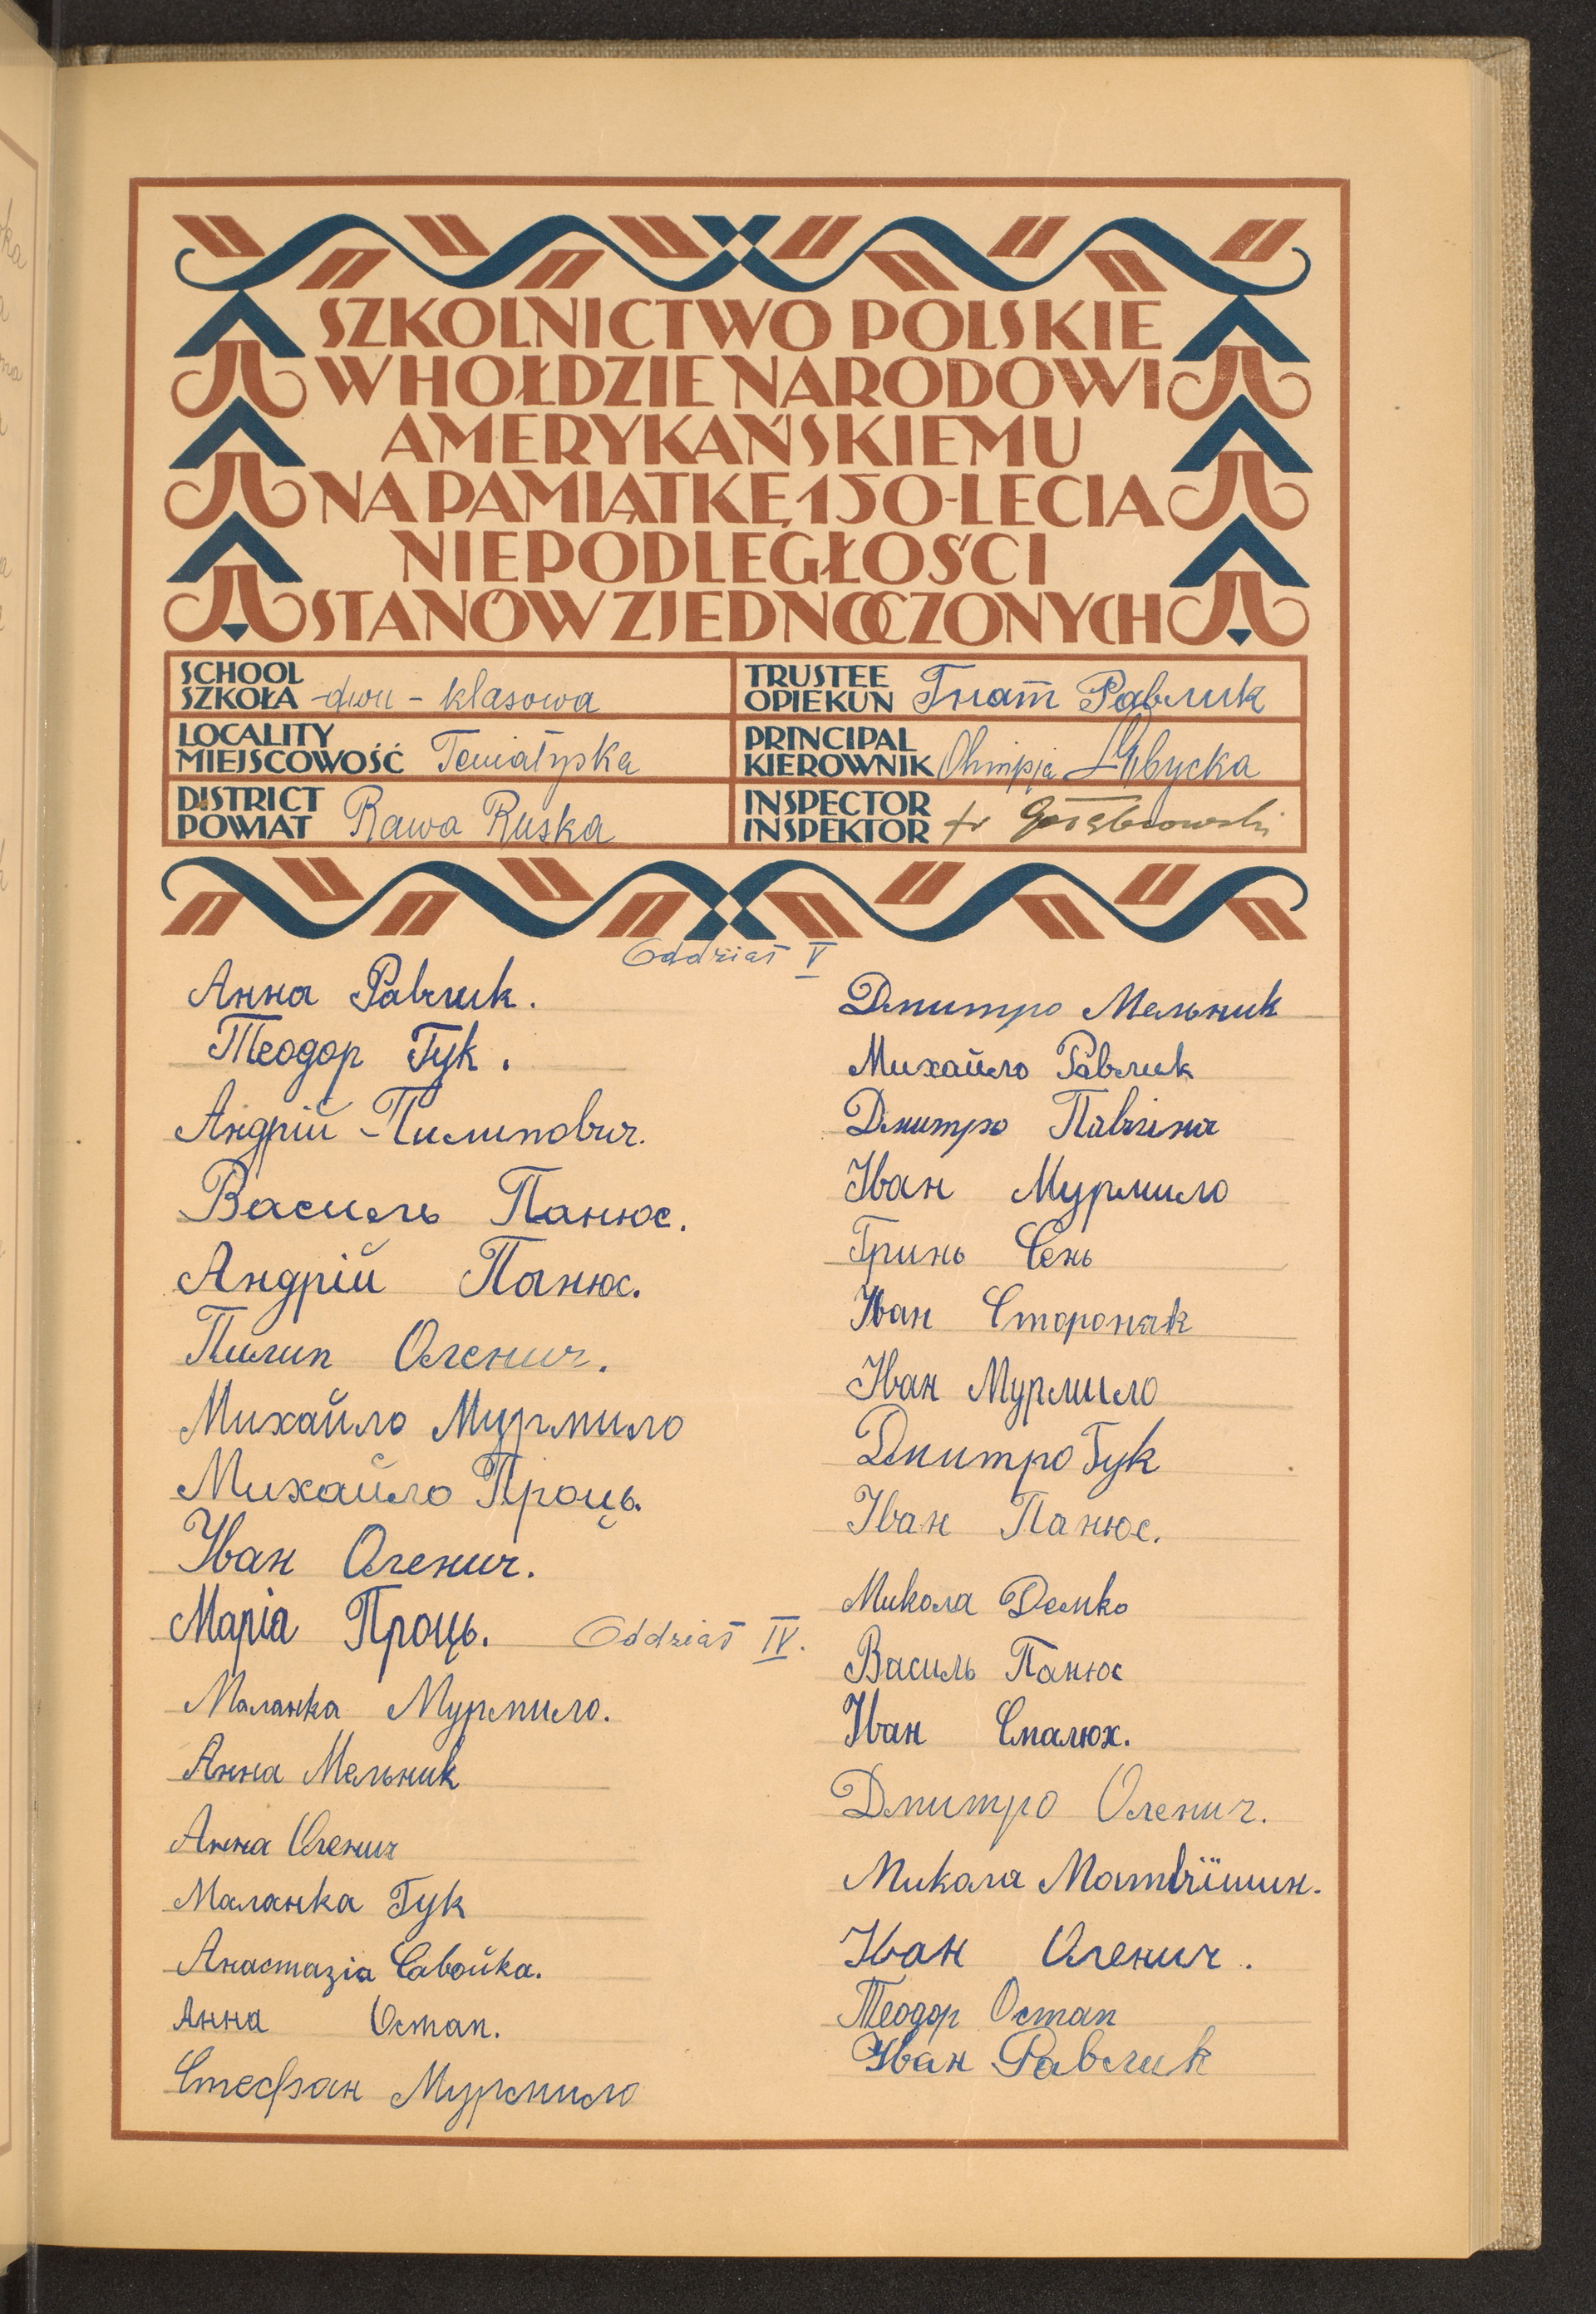 SZKOLNICTWO POLSKIE
W HOŁDZIE NARODOWI
AMERYKAŃSKIEMU
NA PAMIĄTKĘ 150-LECIA
NIEPODLEGŁOŚCI
STANÓW ZJEDNOCZONYCH
SCHOOL
SZKOŁA -dwu-klasowa
LOCALITY
MIEJSCOWOŚĆ Teniatyska
DISTRICT
POWIAT Rawa Ruska
TRUSTEE
OPIEKUN Гнат Равлик
PRINCIPAL
KIEROWNIK Olimpja
INSPECTOR
INSPEKTOR
Oddział V
Анна Равлик.
Теодор Гук.
Андрій Пилипович.
Василь Панюс.
Андрій Панюс.
Пилип Оленич.
Михайло Мурмило
Михайло Проць.
Іван Оленич.
Марія Проць.
Oddział IV.
Маланка Мурмило.
Анна Мельник
Анна Оленич
Маланка Гук
Анастазія Савойка.
Анна Остап.
Стефан Мурмило
Дмитро Мельник
Михайло Равлик
Дмитро Павліна
Іван Мурмило
Гринь Сень
Іван Стороняк
Іван Мурмило
Дмитро Гук
Іван Панюс.
Микола Демко
Василь Панюс
Іван Смалюх.
Дмитро Оленич.
Микола Матвїишин.
Іван Оленич.
Теодор Остап
Іван Равлик